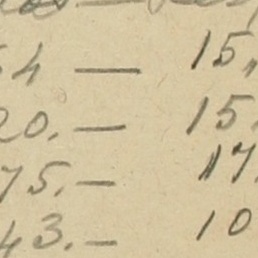 54 — 15,
20. — 15
75. — 17.
43. — 10